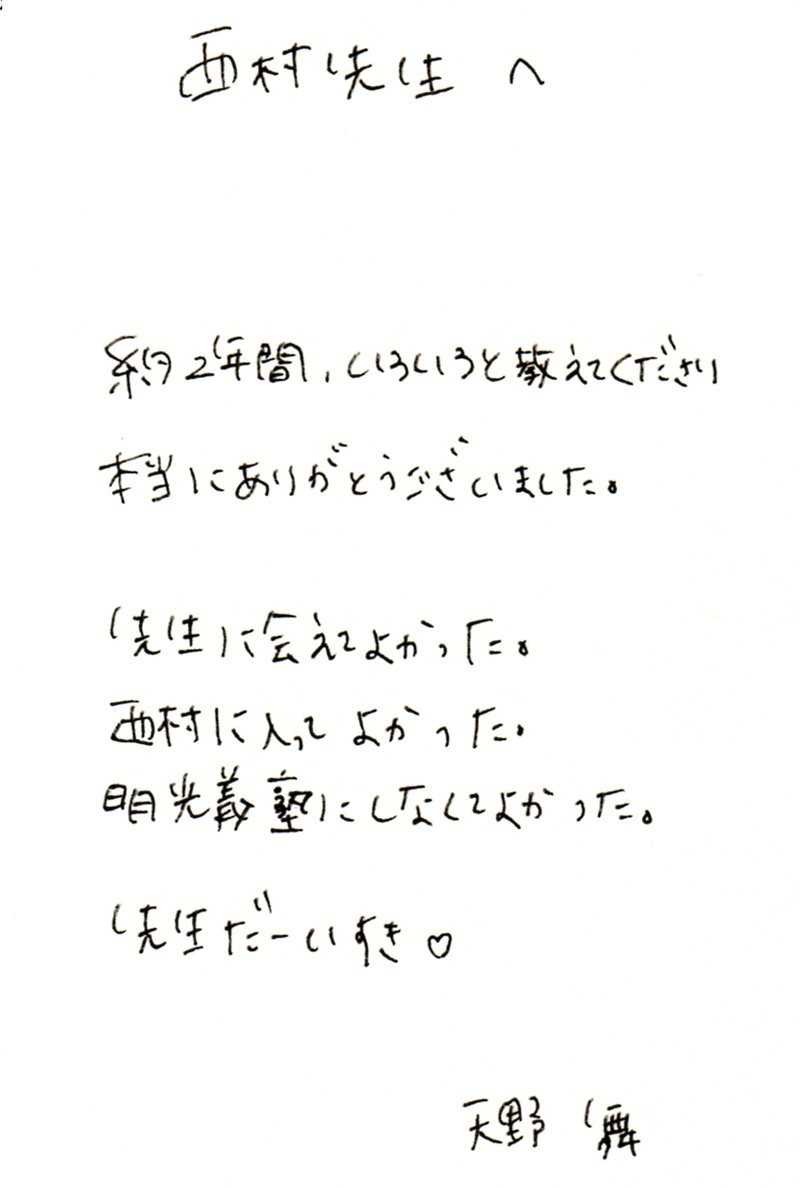 西村先生へ
約2年間、いろいろと教えてくださり
本当にありがとうございました。
先生に会えてよかった。
西村に入ってよかった。
明光義塾にしなくてよかった。
先生だーいすき♡
天野 舞